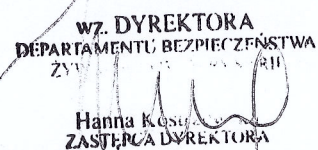 wz. DYREKTORA
DEPARTAMENTU BEZPIECZEŃSTWA
Hanna
ZASTĘPCA DYREKTORA